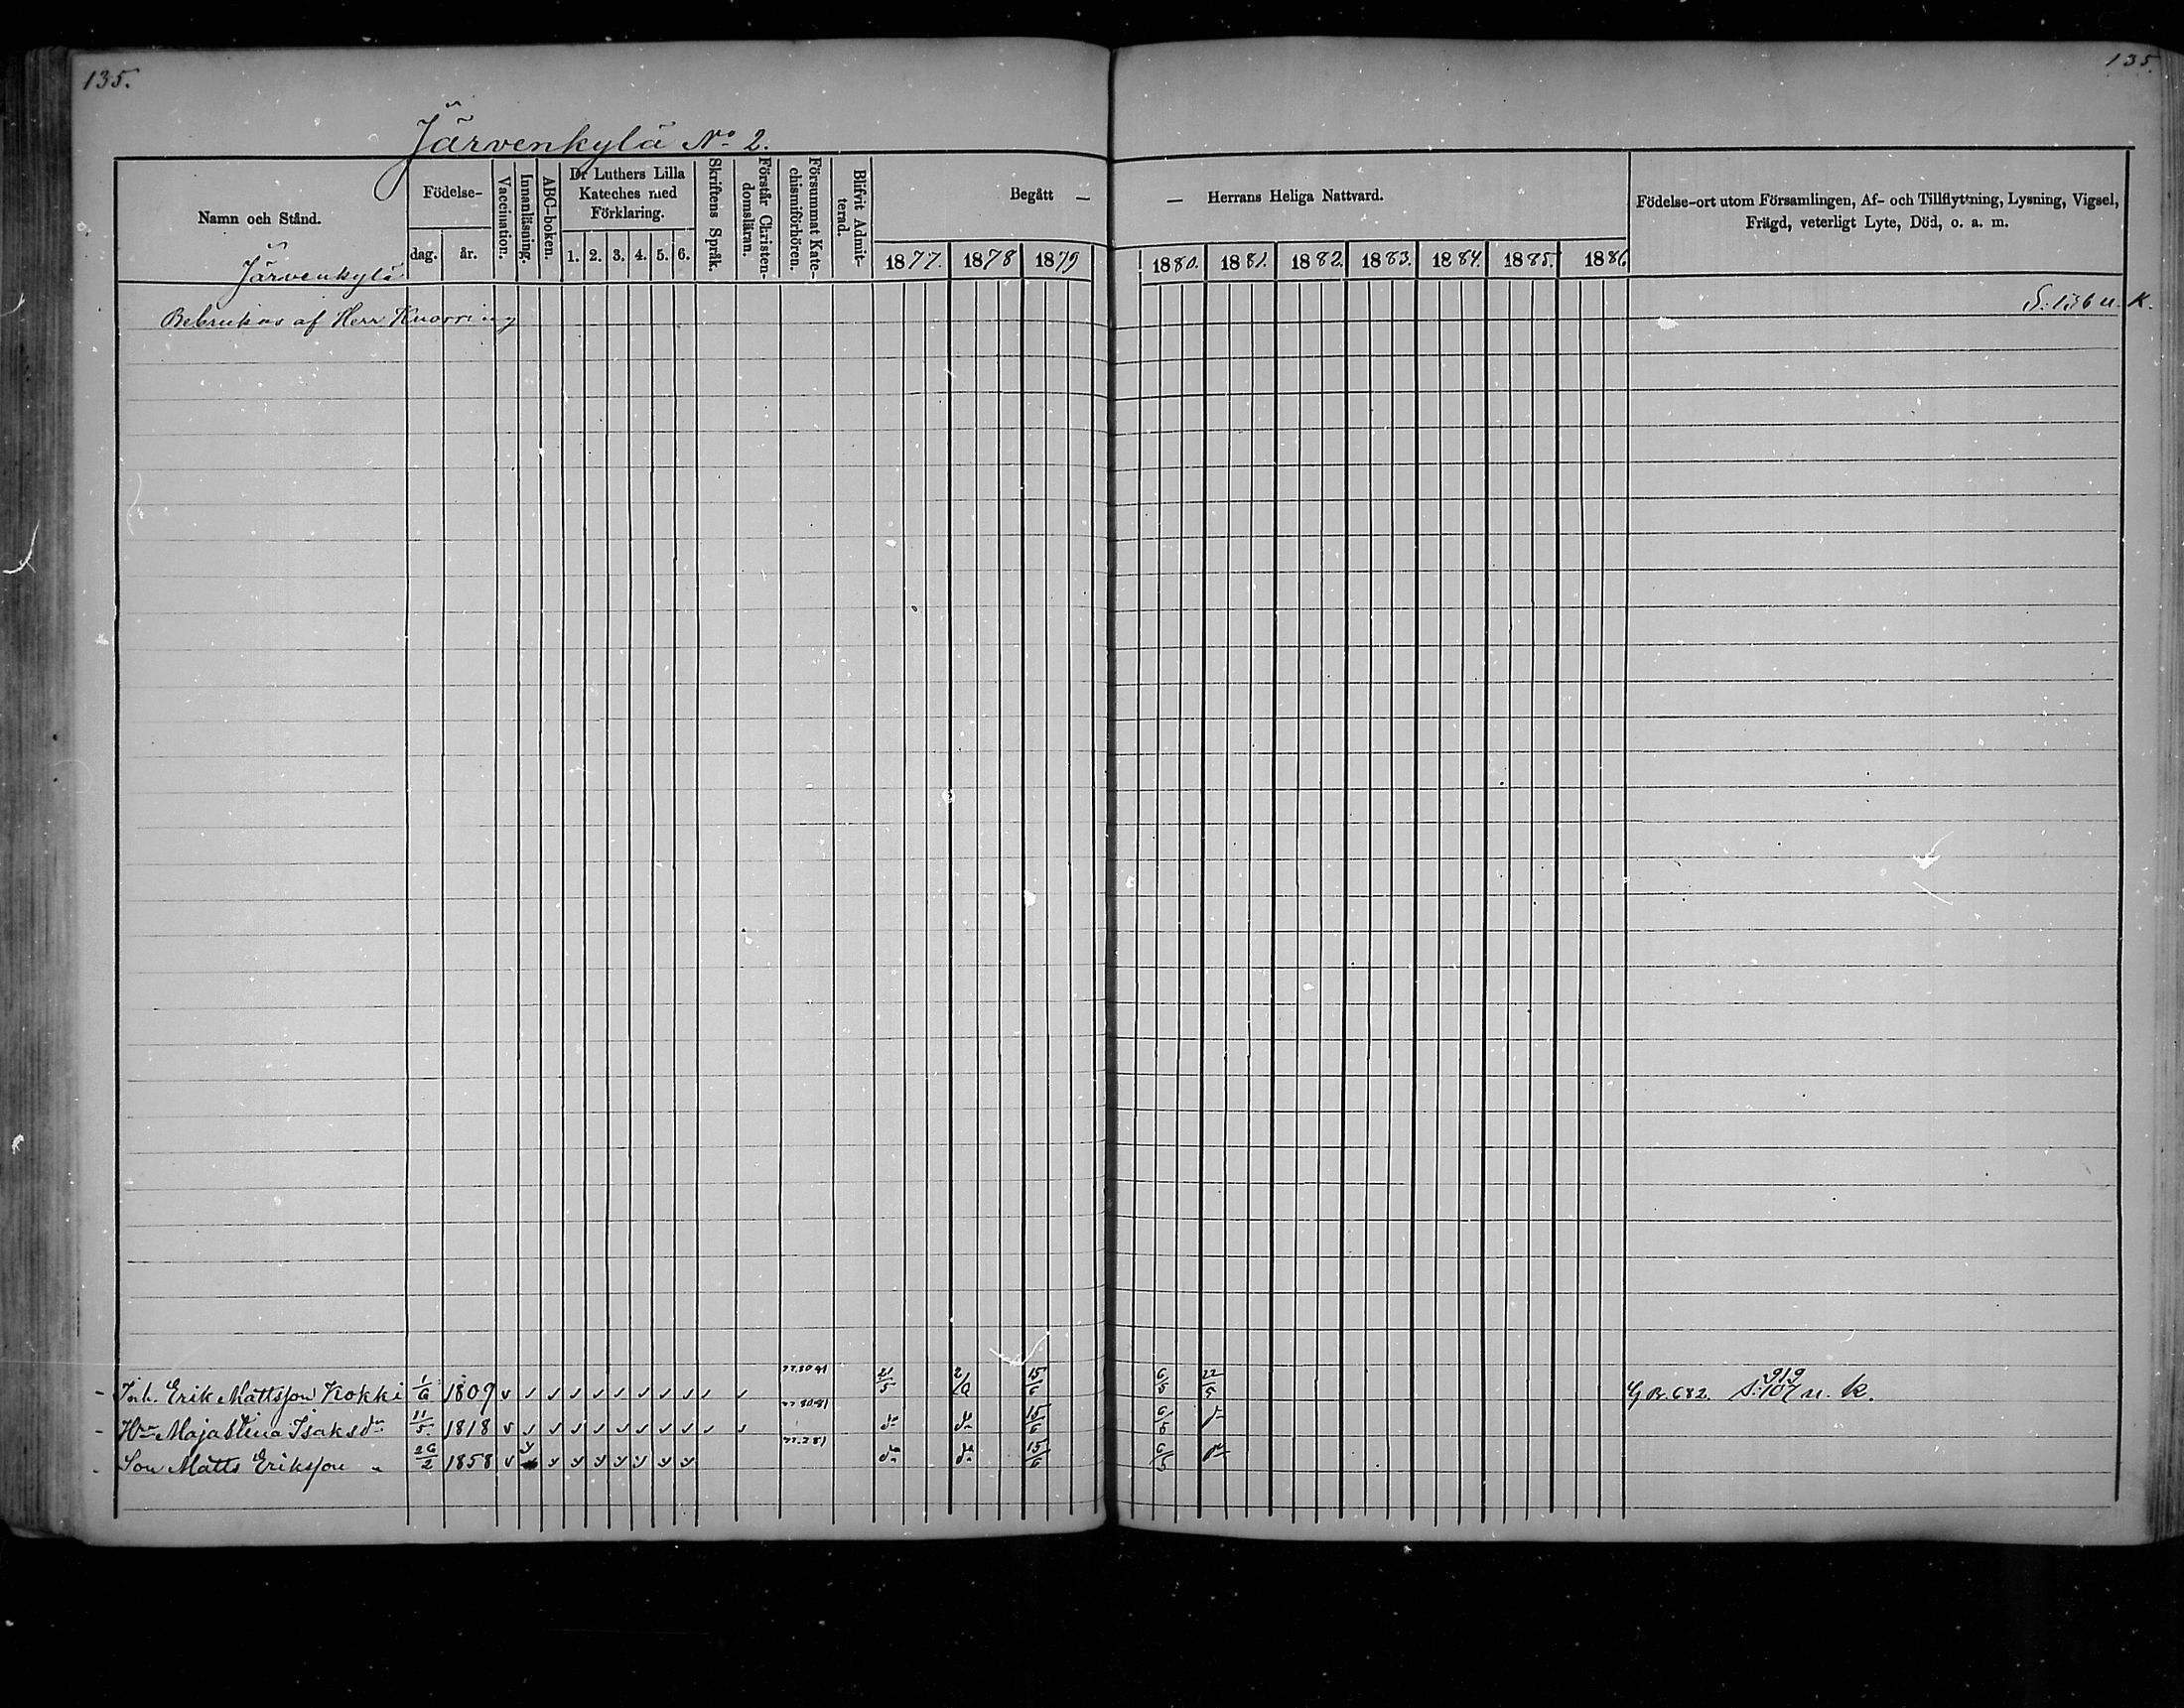 135.
135.
Järvenkylä No 2.
Namn och Stånd.
Födelse-
dag.
år.
Vaccination.
Innanläsning.
ABC-boken.
Dr Luthers Lilla
Kateches med
Förklaring.
1. 2. 3. 4. 5. 6.
Skriftens Språk.
Förstår Christen-
domsläran.
Försummat Kate-
chismiförhören.
Blifvit Admit-
terad.
Begått —
— Herrans Heliga Nattvard.
1877. 1878 1879
1880. 1881. 1882. 1883. 1884. 1885. 1886
Födelse-ort utom Församlingen, Af- och Tillflyttning, Lysning, Vigsel,
Frägd, veterligt Lyte, Död, o. a. m.
Järvenkylä
Bebrukas af Herr Knorring
S. 136 u. K.
Inh. Erik Mattsson Kokki 1/6 1809 21/5 2/6 15/6 6/5 22/5 S. 107 u. k.
919
Hru Maja Stina Isaksdr 11/5 1818 do do 15/6 6/5
Son Matts Eriksson 26/2 1858 do do 15/6 6/5